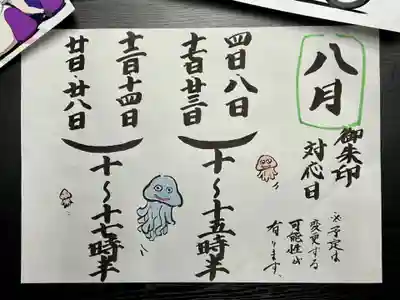 八月
御朱印
対応日
※予定は
変更する
可能性が
有ります。
四日八日
十七日廿三日
十〜十五時半
十四日
廿日・廿八日
十〜十七時半